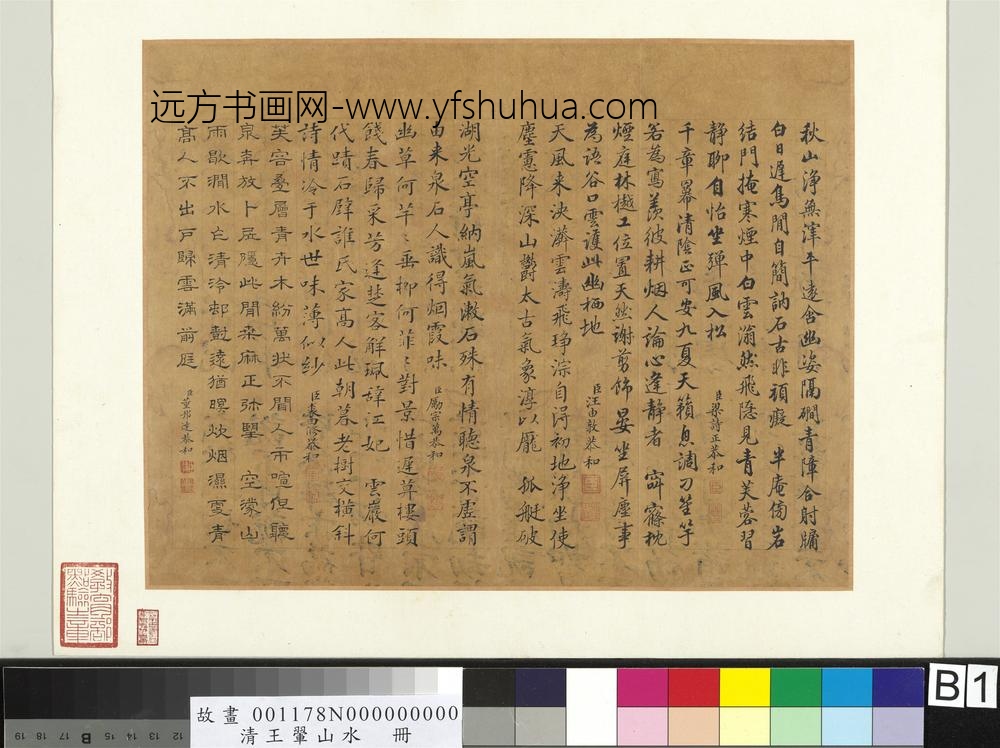 远方书画网-www.yfshuhua.com
秋山淨無滓平遠含幽姿隔磵青障合射牖
白日遲鳥閒自簡訥石古非頑癡 半庵傍岩
結門掩寒煙中白雲滃然飛隱見青芙蓉習
靜聊自怡坐彈風入松
臣梁詩正恭和
千章羃清陰正可安九夏天籟息調刁笙竽
若為寫羨彼耕烟人論心逢靜者 穽窱枕
煙庭林樾工位置天然謝剪飾晏坐屏塵事
為語谷口雲護此幽栖地
臣汪由敦恭和
天風来泱漭雲濤飛琤淙自得初地淨坐使
塵慮降深山鬱太古氣象淳以厖 孤艇破
湖光空亭納嵐氣漱石殊有情聽泉不虛謂
由来泉石人識得烟霞味
臣勵宗萬恭和
幽草何芊芊垂柳何菲菲對景惜遲草樓頭
餞春歸采芳逢楚客解珮辞江妃 雲巖何
代蹟石壁誰氏家高人此朝暮老樹交橫斜
詩情冷于水世味薄似紗
臣裘曰修恭和
芙容疊層青卉木紛萬狀不聞人市喧但聽
泉奔放卜居隱此間桑麻正弥望 空濛山
雨歇澗水亡清泠邨鼓遠猶暝炊烟濕更青
高人不出戶歸雲滿前庭
臣董邦達恭和
教育部點驗之章
故畫 001178N000000000
清王翬山水 冊
B 1
19 18 17 16 B 15 14 13 12